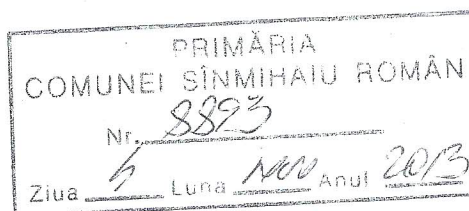 PRIMĂRIA
COMUNEI SÎNMIHAIU ROMÂN
Nr. 8893
Ziua Luna Anul 2013